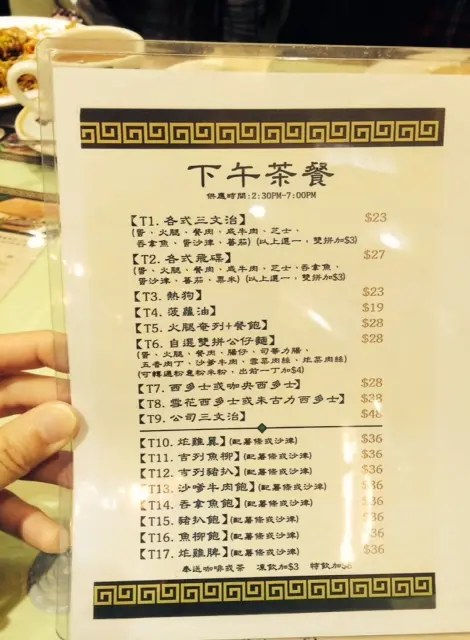 下午茶餐
供應時間:2:30PM-7:00PM
【T1. 各式三文治】 $23
(蛋、火腿、餐肉、咸牛肉、芝士、
吞拿魚、蛋沙律、蕃茄) (以上選一，雙拼加$3)
【T2. 各式飛碟】 $27
(蛋、火腿、餐肉、咸牛肉、芝士、吞拿魚、
蛋沙律、蕃茄、粟米) (以上選一，雙拼加$3)
【T3. 熱狗】 $23
【T4. 菠蘿油】 $19
【T5. 火腿奄列+餐飽】 $28
【T6. 自選雙拼公仔麵】 $28
(蛋、火腿、餐肉、腸仔、司華力腸、
五香肉丁、沙爹牛肉、雪菜肉絲、炸菜肉絲)
(可轉通粉意粉米粉，出前一丁加$4)
【T7. 西多士或咖央西多士】 $28
【T8. 雪花西多士或朱古力西多士】 $38
【T9. 公司三文治】 $48
【T10. 炸雞翼】(配薯條或沙律) $36
【T11. 吉列魚柳】(配薯條或沙律) $36
【T12. 吉列豬扒】(配薯條或沙律) $36
【T13. 沙爹牛肉飽】(配薯條或沙律) $36
【T14. 吞拿魚飽】(配薯條或沙律) $36
【T15. 豬扒飽】(配薯條或沙律) $36
【T16. 魚柳飽】(配薯條或沙律) $36
【T17. 炸雞髀】(配薯條或沙律) $36
奉送咖啡或茶 凍飲加$3 特飲加